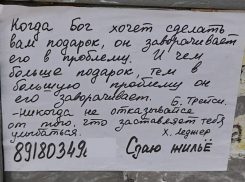 Когда Бог хочет сделать
вам подарок, он заворачивает
его в проблему. И чем
больше подарок, тем в
большую проблему он
его заворачивает. Б. Трейси.
-Никогда не отказывайся
от того, что заставляет тебя
улыбаться. Х. Леджер
89180349. Сдаю жильё